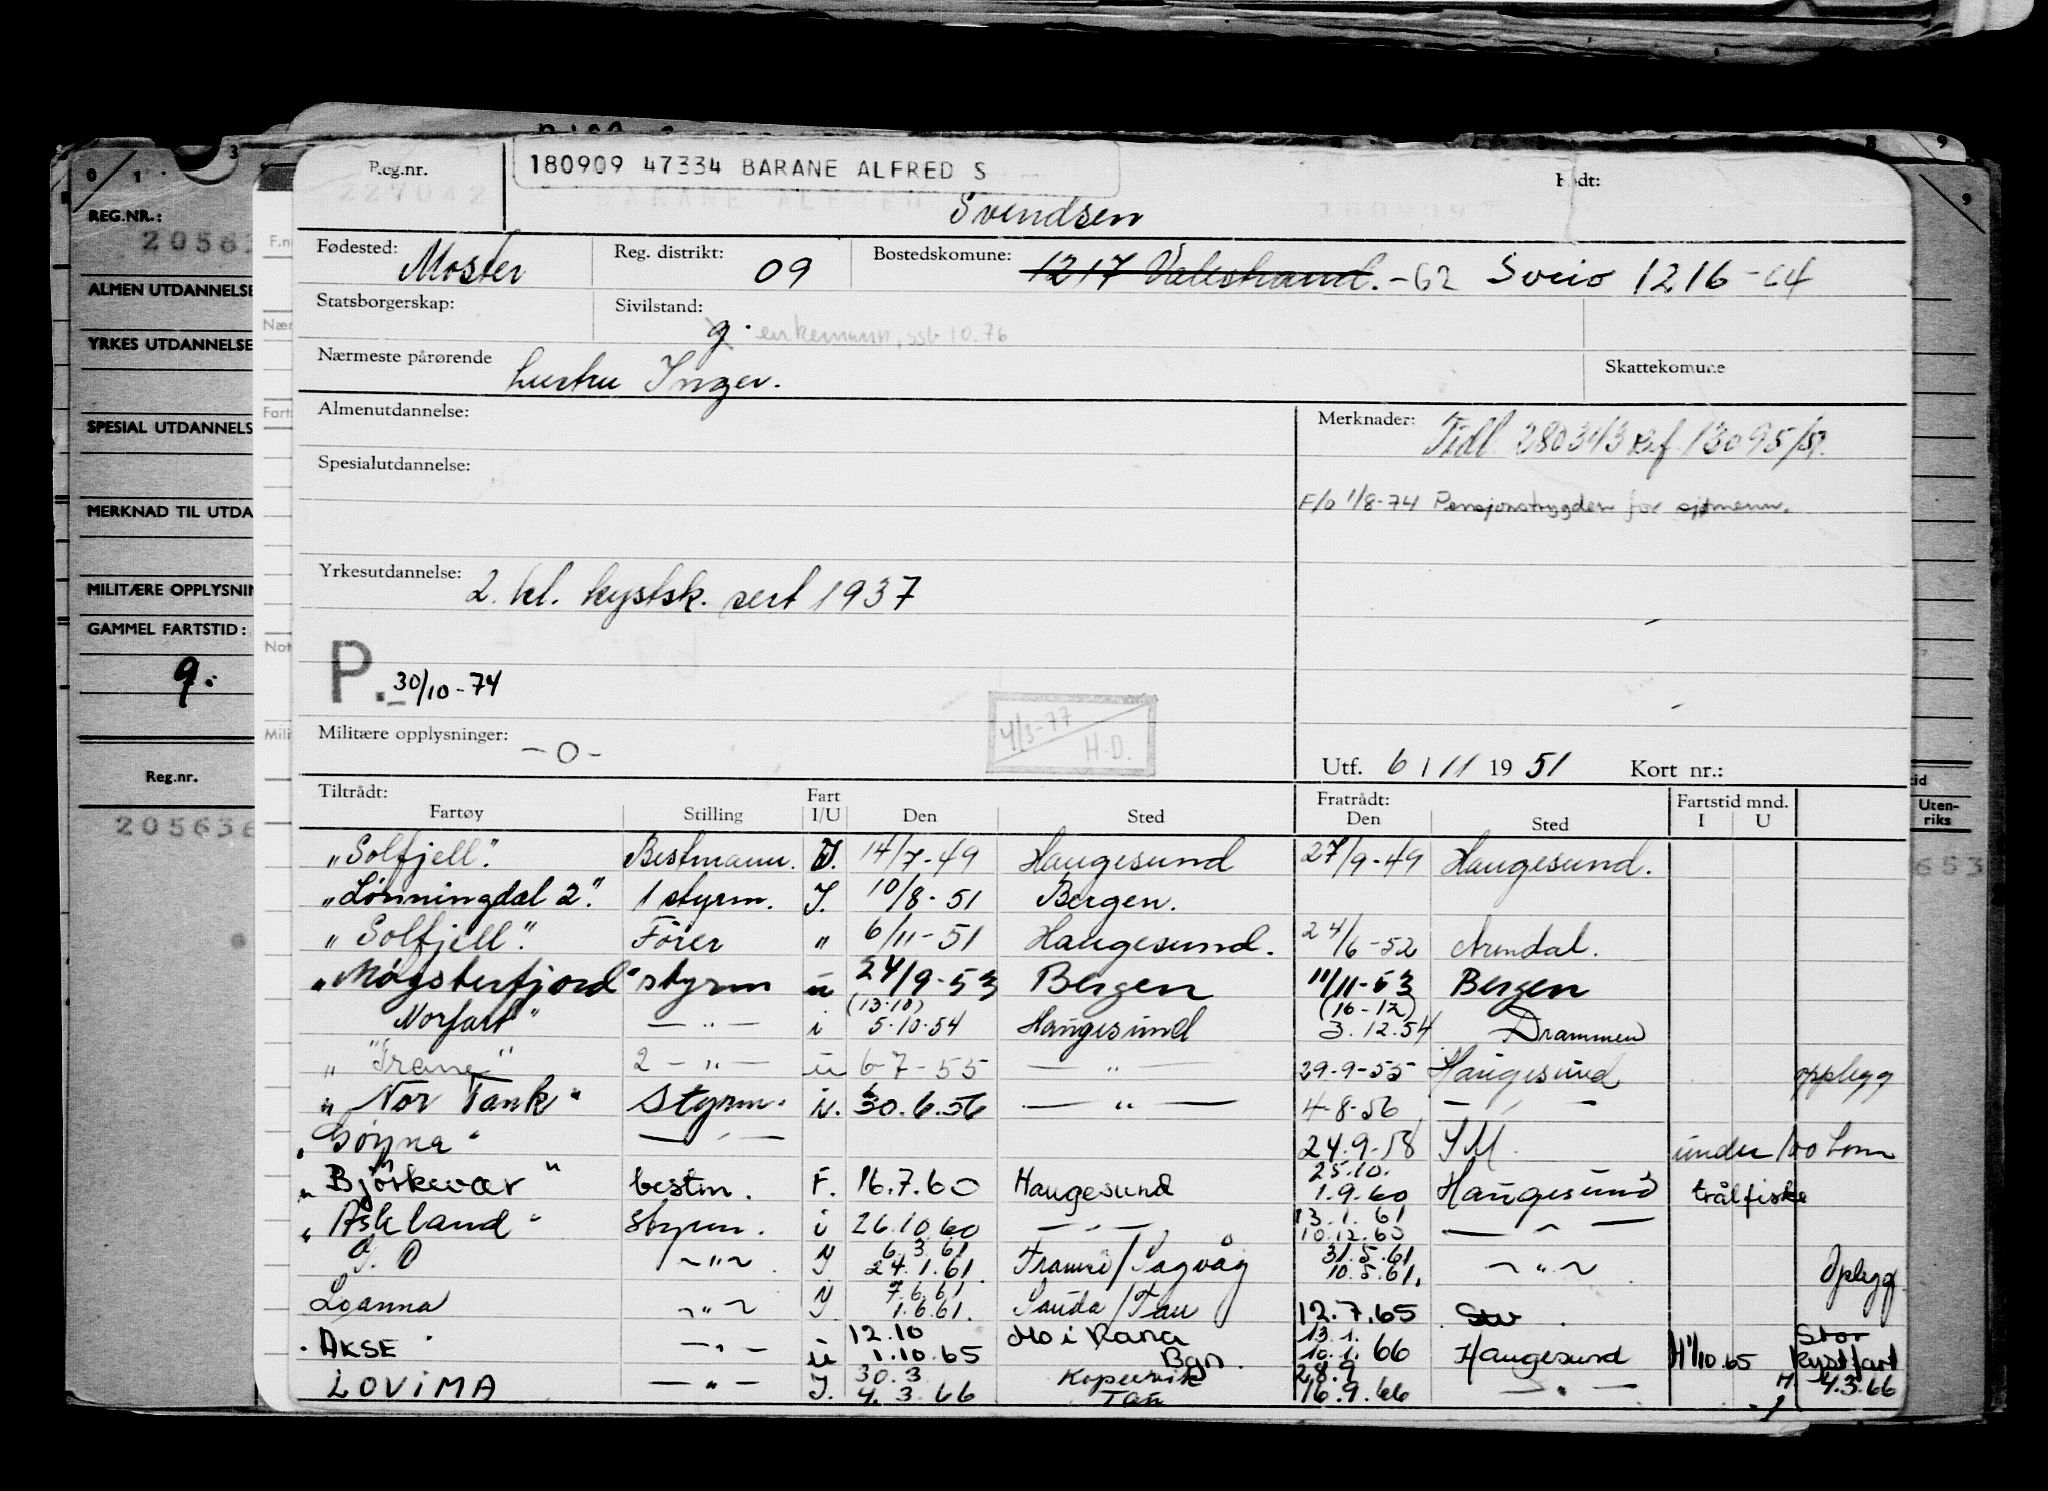 0 1 3
8 9
REG.NR.:
ALMEN UTDANNELSE
YRKES UTDANNELSE
SPESIAL UTDANNELS
MERKNAD TIL UTDA
MILITÆRE OPPLYSNIN
GAMMEL FARTSTID:
g.
Reg.nr.
205636
Reg.nr. 180909 47334 BARANE ALFRED S Født:
Svendsen
Fødested: Moster Reg. distrikt: 09 Bostedskomune: 1217 Valestrand. -62 Sveio 1216-64
Statsborgerskap: Sivilstand: g. enkemann, ssb 10.76
Nærmeste pårørende hustru Inger. Skattekomune
Almenutdannelse: Merknader: Tidl. 280343 Ref. 13095/51.
Spesialutdannelse:
F/o 1/8-74 Pensjonstrygden for sjømenn.
Yrkesutdannelse: 2. kl. kystsk. sert 1937
P. 30/10-74
4/3-77 H.D.
Militære opplysninger: -0-
Utf. 6 / 11 1951 Kort nr.:
Tiltrådt: Fart Fratrådt: Fartstid mnd.
Fartøy Stilling I/U Den Sted Den Sted I U
Uten-
riks
"Solfjell". Bestmann. I. 14/7-49 Haugesund 27/9-49 Haugesund.
"Lønningdal 2." 1 styrm. I. 10/8-51 Bergen.
"Solfjell". Fører " 6/11-51 Haugesund. 24/6-52 Arendal.
"Møgsterfjord" styrm u 24/9-53 Bergen 11/11-53 Bergen
(13.10) (16-12)
Norfart" -"- i 5.10.54 Haugesund 3.12.54 Drammen
" 2 -"- u 6-7-55 -"- 29-9-55 Haugesund opplegg
"Nor Tank" Styrm. u. 30.6.56 -"- 4-8-56 -"-
-"- 24.9.58 SM. under 100 tonn
25.10.
"Bjørkevær" bestm. F. 16.7.60 Haugesund 1.9.60 Haugesund trålfiske
13.1.61
"Askland" Styrm. i 26.10.60 -"- 10.12.60 -"-
6.3.61 31.5.61
-"- I 24.1.61. 10.5.61. -"- Oplegg
7.6.61
Loanna -"- I 1.6.61. Sauda/Tau 12.7.65 Stv.
12.10 Mo i Rana 13.1. Stor
AKSE -"- u 1.10.65 Bgn. 10.1.66 Haugesund H 1/10.65 kystfart
30.3 Kopervik 28.9 H. 4.3.66
LOVIMA -"- I. 4.3.66 Tau 16.9.66 -"-